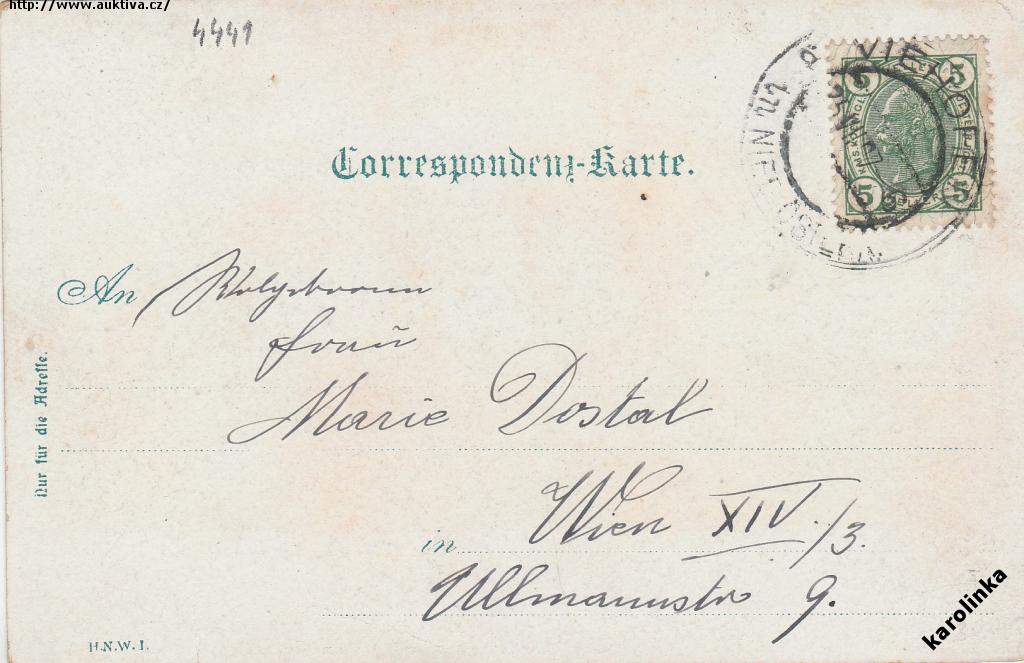 http://www.auktiva.cz/
4441
5 5
5 5
Correspondenz-Karte.
An Wohlgeboren
Frau
Marie Dostal
in Wien XIV./3.
Ullmannstr 9.
Nur für die Adresse.
H.N.W.I.
karolinka